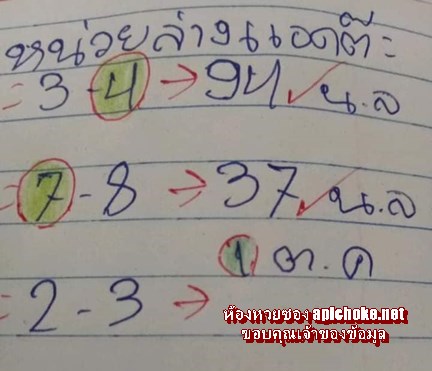 หน่วยล่างแอดต๊ะ
= 3 - 4 → 94 ✓ น.ล
= 7 - 8 → 37 ✓ น.ล
1 ต.ค
= 2 - 3 →
ห้องหวยซอง apichoke.net
ขอบคุณเจ้าของข้อมูล